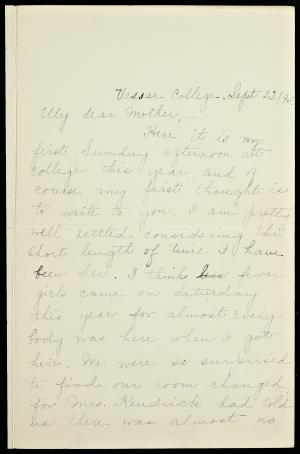 Vassar College, Sept. 22/
My dear Mother,—
Here it is my
first Sunday afternoon at
college this year, and of
course my first thought is
to write to you. I am pretty
well settled considering the
short length of time I have
been here. I think less fewer
girls came on Saturday
this year for almost every-
body was here when I got
here. We were so surprised
to find our room changed,
for Mrs. Kendrick had told
us there was almost no